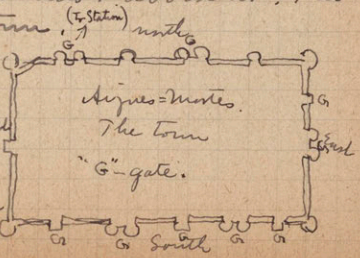 (To Station)
north
G G
Aigues=Mortes.
The town
"G"-gate.
G
G East
G G G G G
South